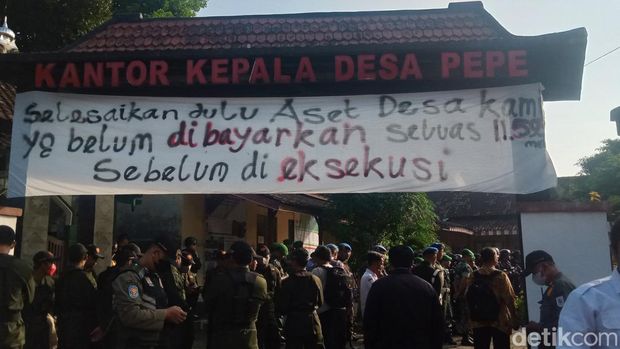 KANTOR KEPALA DESA PEPE
Selesaikan dulu Aset Desa kami
yg belum dibayarkan seluas
Sebelum di eksekusi
detikcom